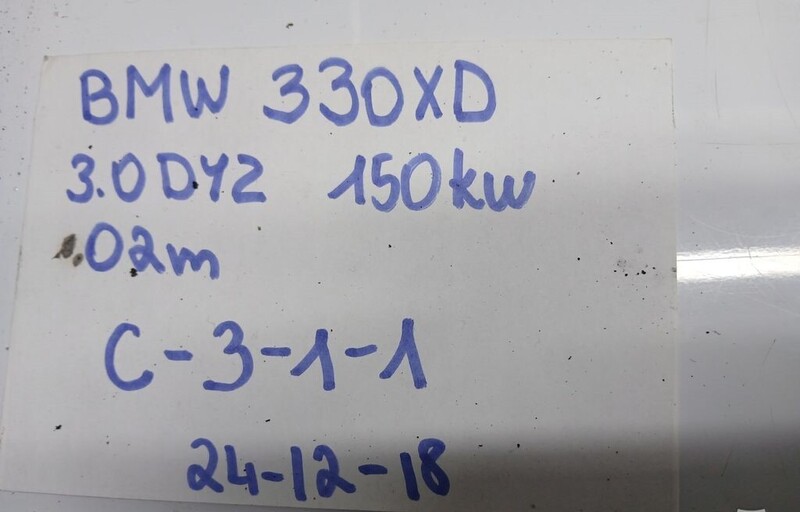 BMW 330XD
3.0DYZ 150kw
.02m
C-3-1-1
24-12-18